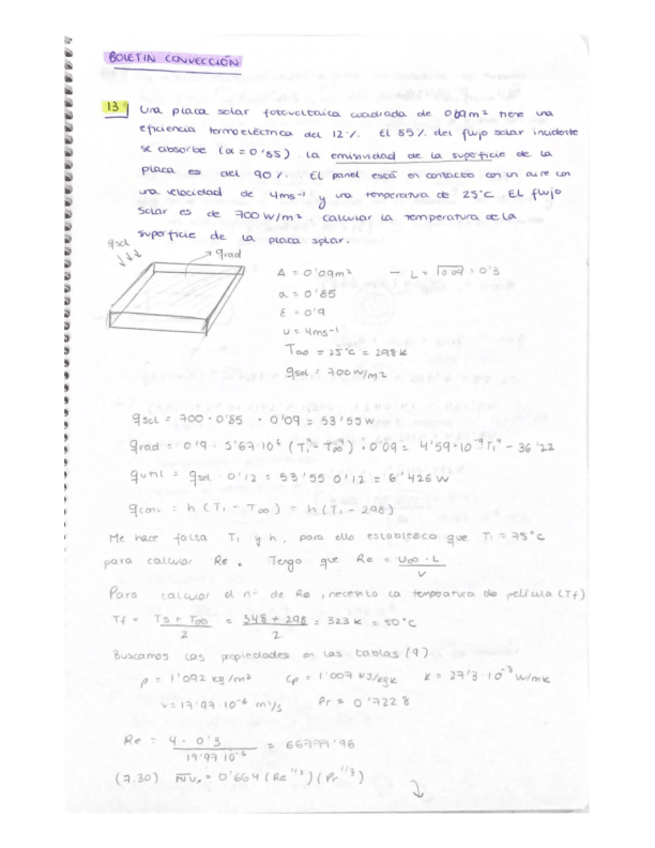 BOLETIN CONVECCIÓN
13 Una placa solar fotovoltaica cuadrada de 0'09m² tiene una
eficiencia termoeléctrica del 12%. El 85% del flujo solar incidente
se absorbe (α = 0'85). La emisividad de la superficie de la
placa es del 90%. El panel está en contacto con un aire con
una velocidad de 4ms⁻¹ y una temperatura de 25°C. El flujo
solar es de 700 W/m². Calcular la temperatura de la
superficie de la placa solar.
qsol
qrad
A = 0'09m² - L = √0'09 = 0'3
α = 0'85
ε = 0'9
u = 4ms⁻¹
T∞ = 25°C = 298K
qsol = 700W/m²
qsol = 700 · 0'85 · 0'09 = 53'55 W
qrad = 0'9 · 5'67·10⁻⁸ (T₁⁴ - T∞⁴) · 0'09 = 4'59·10⁻⁹ T₁⁴ - 36'22
qutil = qsol · 0'12 = 53'55 · 0'12 = 6'426 W
qconv = h (T₁ - T∞) = h (T₁ - 298)
Me hace falta T₁ y h, para ello establezco que T₁ = 75°C
para calcular Re. Tengo que Re = U∞ · L / v
Para calcular el nº de Re, necesito la temperatura de película (Tf)
Tf = Ts + T∞ / 2 = 348 + 298 / 2 = 323 K = 50°C
Buscamos las propiedades en las tablas (9)
ρ = 1'092 kg/m³ Cp = 1'007 kJ/kgK k = 27'3 · 10⁻³ W/mK
v = 17'97 · 10⁻⁶ m²/s Pr = 0'7228
Re = 4 · 0'3 / 17'97 · 10⁻⁶ = 66777'96
(7.30) Nu = 0'664 (Re^1/2) (Pr^1/3)